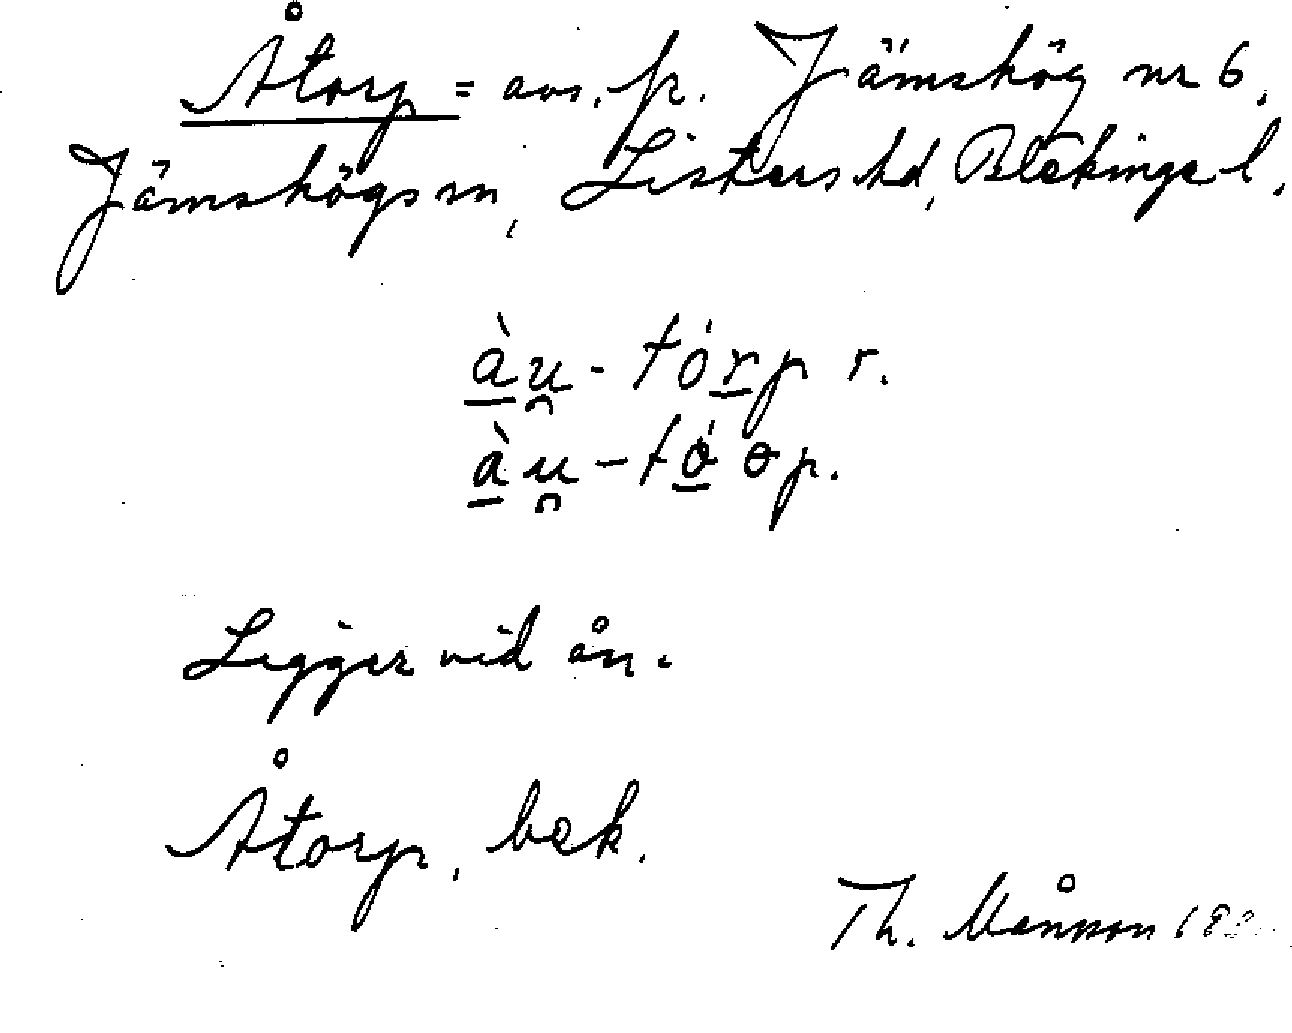 Åtorp = avs. p. Jämshög nr 6,
Jämshögs sn, Listers hd, Blekinge l.
àu̯-tórp r.
àu̯-tó
Ligger vid ån.
Åtorp, bek.
Th. Månsson